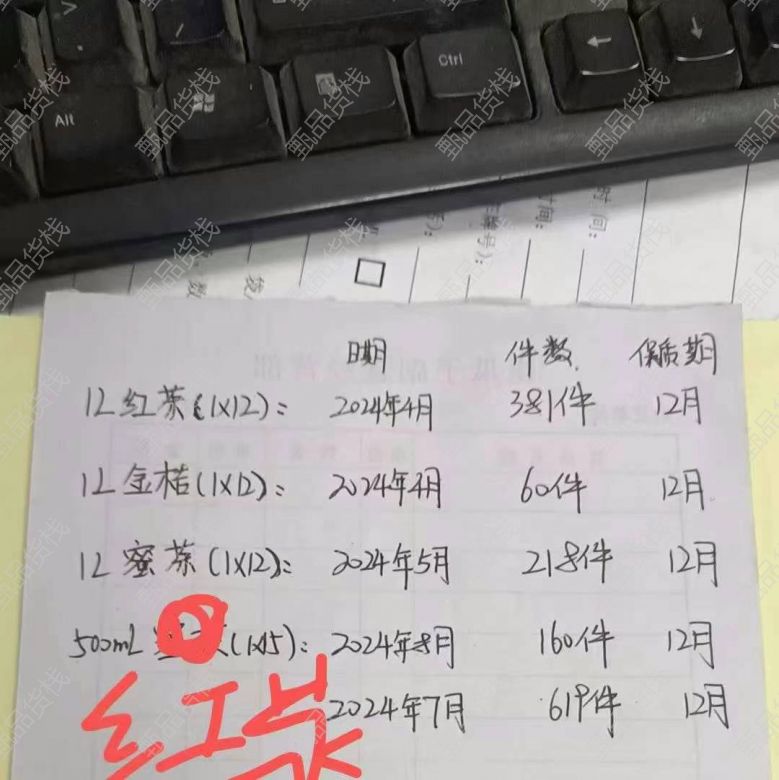 Alt
Ctrl
时间:
日期 件数 保质期
1L红茶(1X12): 2024年4月 381件 12月
1L金桔(1X12): 2024年4月 60件 12月
1L蜜茶(1X12): 2024年5月 218件 12月
500mL (1x15): 2024年8月 160件 12月
红茶
2024年7月 619件 12月
甄品货栈